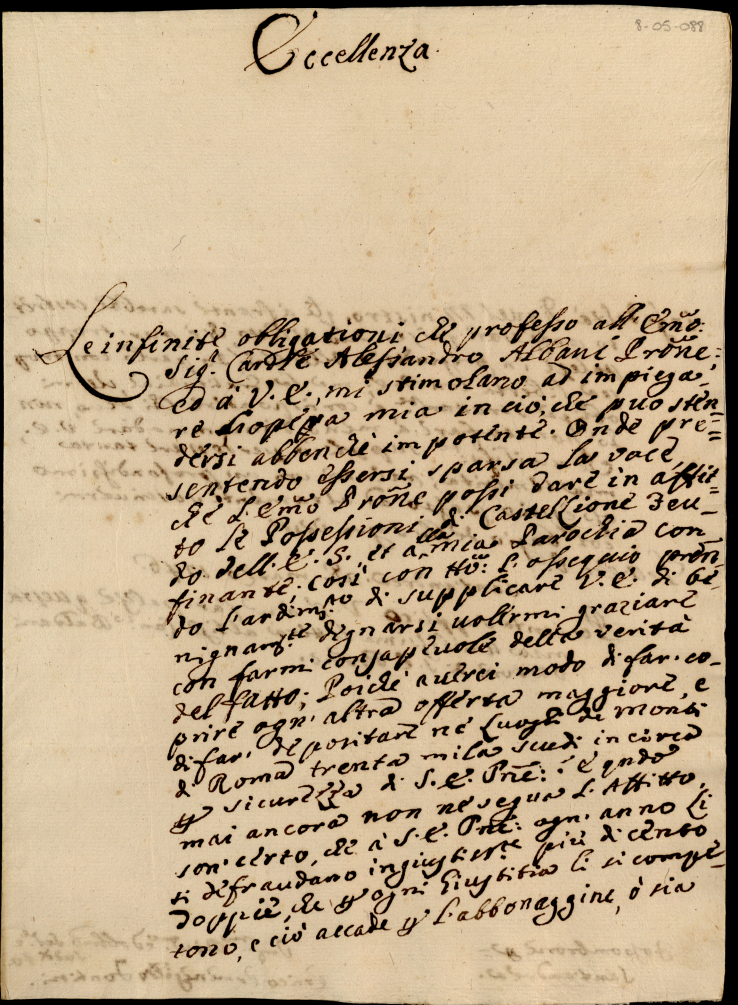 8-05-088
Eccellenza.
Le infinite obligationi che professo all' Em̃o:
Sig.r Cardle Alessandro Albani Prõne:
ed à V. E., mi stimolano ad impiega=
re l'opera mia in ciò, che può sten=
dersi abbenche impotente. Onde pre=
sentendo essersi sparsa la voce,
che L'Em̃o Prõne possi dare in affit=
to le Possessioni di Castellione Feu=
do dell. E. S., et alla mia Parochia con
finante, così con tto: L'ossequio pren
do l'ardim.to di supplicare V. E. di be=
nignam.te degnarsi uolermi graziare
con farmi consapeuole della verità
del fatto; Poiche aurei modo di far co=
prire ogn' altra offerta maggiore, e
di far' depositare ne Luoghi de monti
di Roma trenta mila scudi in circa
per sicurezza di S. E. Pñe: e qndo
mai ancora non ne segua L'Affitto,
son' certo, che à S. E. Pñe: ogn' anno li
si defraudano ingiustiss.te più di cento
doppie, che per ogni Giustitia li si compe=
tono, e ciò accade per l'abbonaggine, ò sia